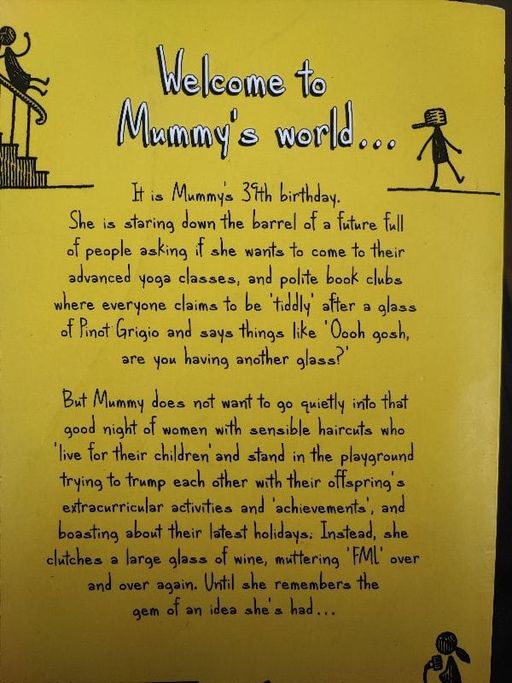 Welcome to
Mummy's world...
It is Mummy's 39th birthday.
She is staring down the barrel of a future full
of people asking if she wants to come to their
advanced yoga classes, and polite book clubs
where everyone claims to be 'tiddly' after a glass
of Pinot Grigio and says things like 'Oooh gosh,
are you having another glass?'
But Mummy does not want to go quietly into that
good night of women with sensible haircuts who
'live for their children' and stand in the playground
trying to trump each other with their offspring's
extracurricular activities and 'achievements', and
boasting about their latest holidays. Instead, she
clutches a large glass of wine, muttering 'FML' over
and over again. Until she remembers the
gem of an idea she's had...